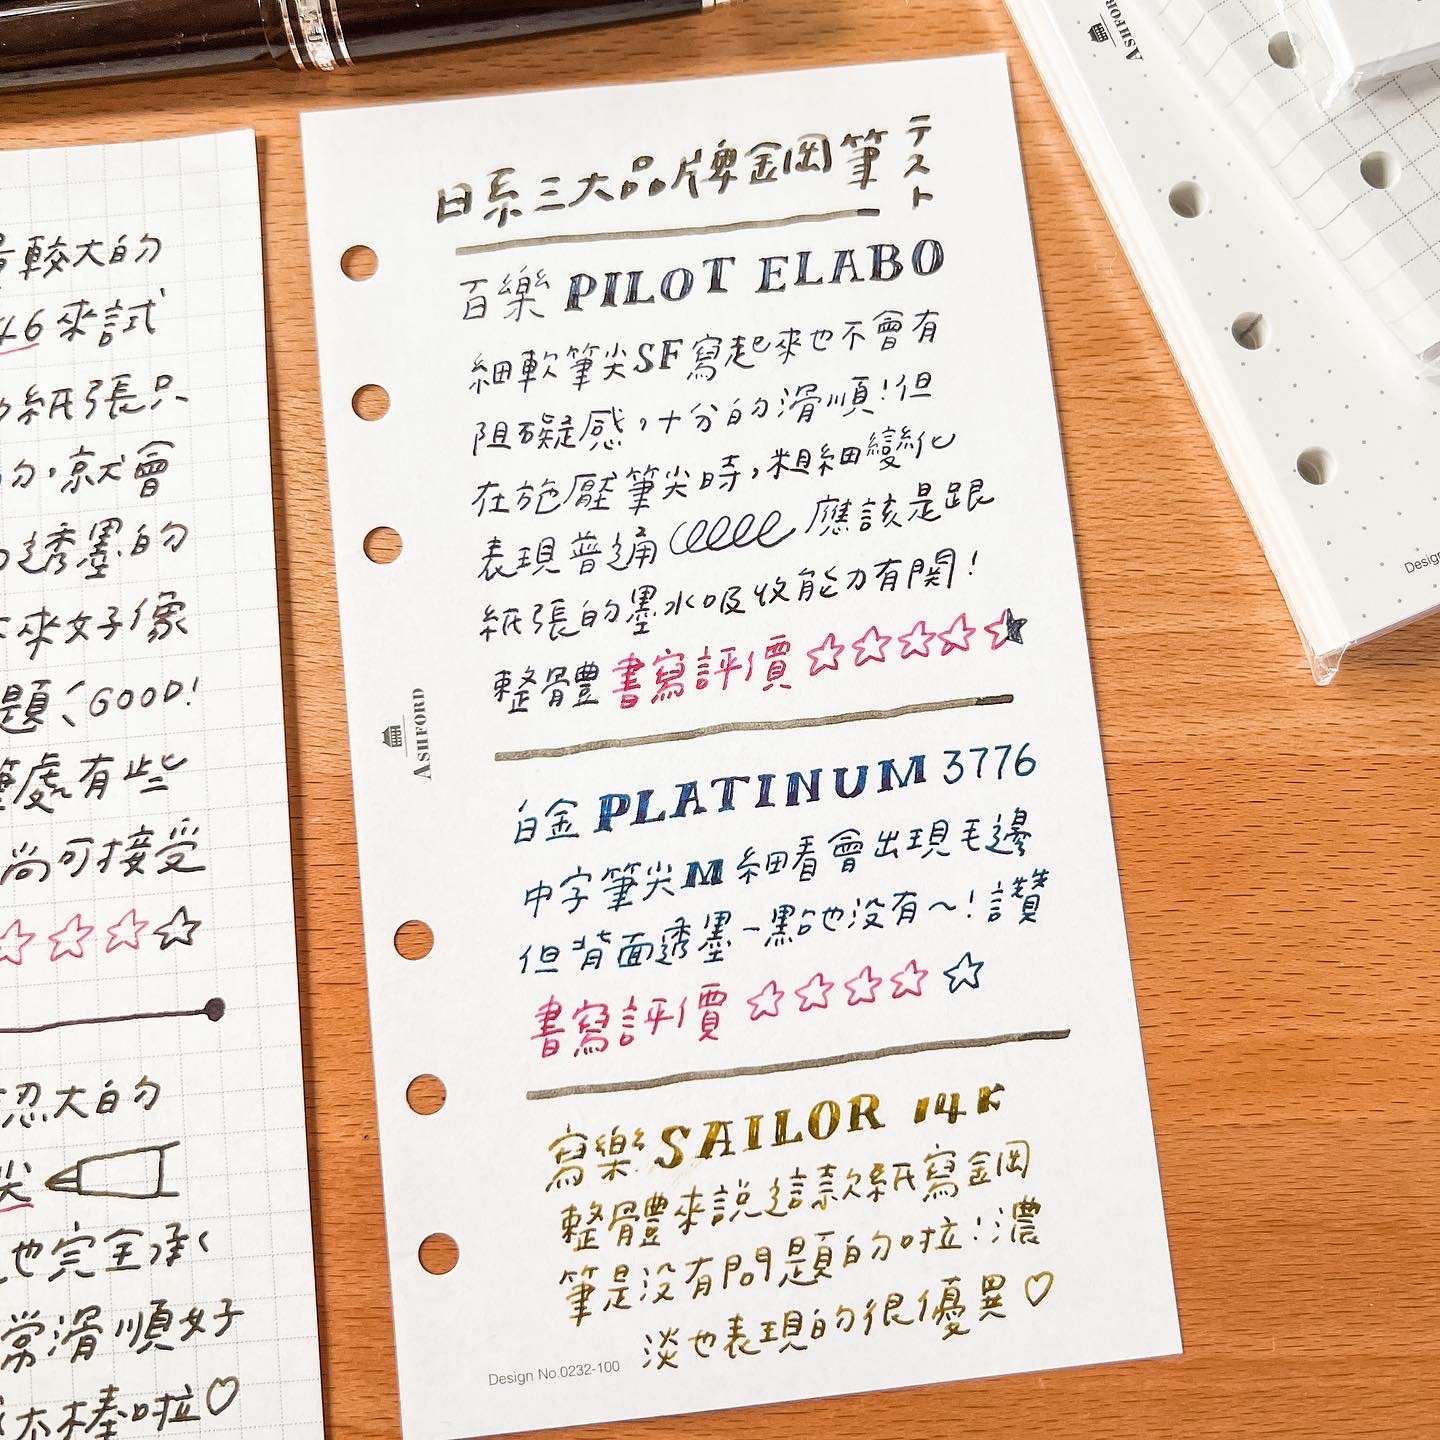 量較大的
46來試
的紙張只
的，就會
透墨的
來好像
題、GOOD!
筆處有些
尚可接受
☆☆☆☆
認大的
尖
也完全承
常滑順好
太棒啦♡
日系三大品牌鋼筆テスト
百樂 PILOT ELABO
細軟筆尖SF寫起來也不會有
阻礙感，十分的滑順！但
在施壓筆尖時，粗細變化
表現普通 應該是跟
紙張的墨水吸收能力有關！
整體書寫評價☆☆☆☆☆
ASHFORD
白金 PLATINUM 3776
中字筆尖M細看會出現毛邊
但背面透墨一點也沒有～！讚
書寫評價☆☆☆☆☆
寫樂 SAILOR 14K
整體來說這款紙寫鋼
筆是沒有問題的啦！濃
淡也表現的很優異♡
Design No.0232-100
ASHFOR
Design